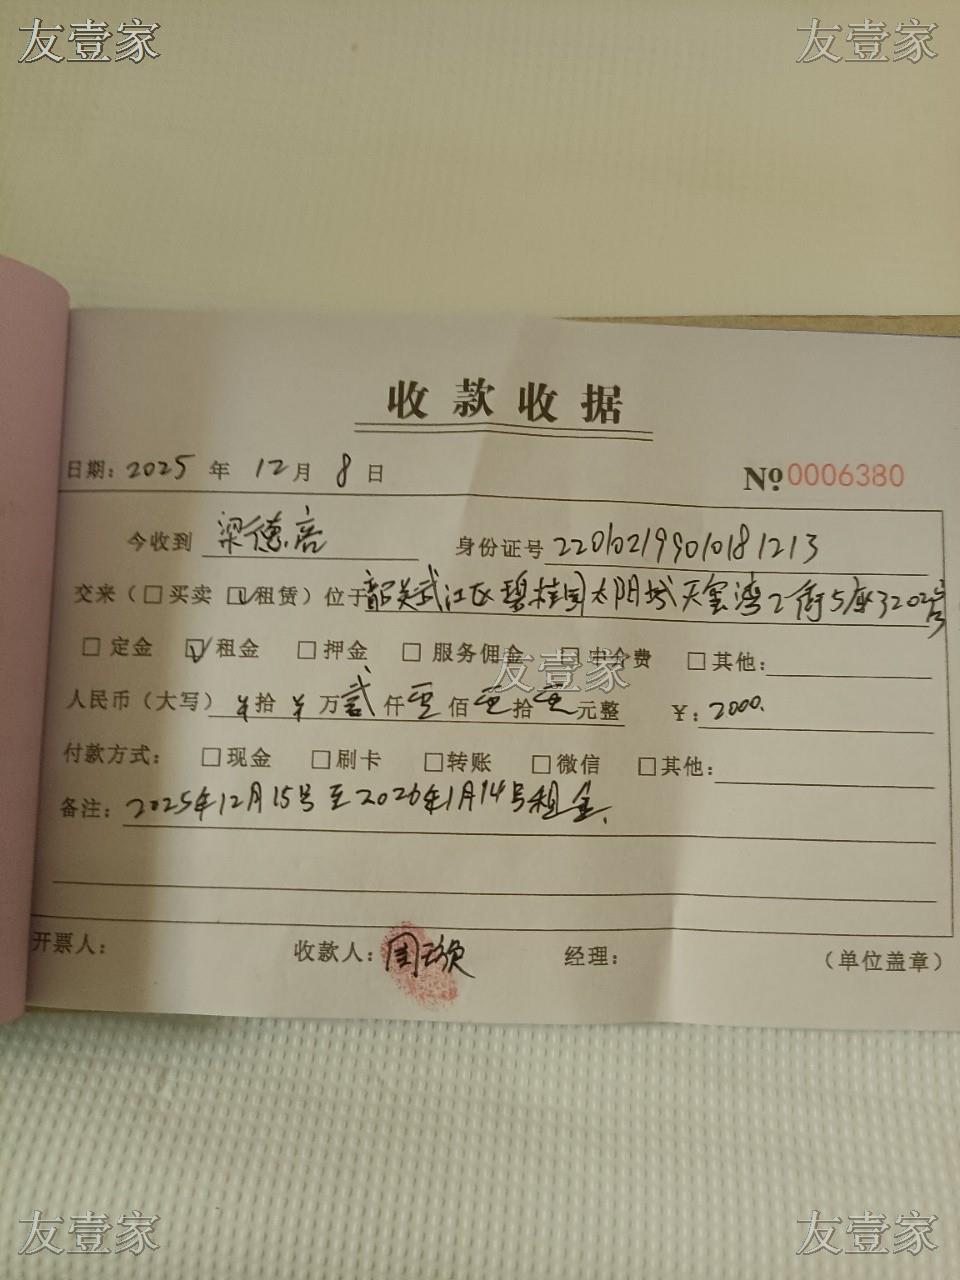 友壹家 友壹家
收款收据
日期：2025年12月8日 No 0006380
今收到 梁德 身份证号 220102199010181213
交来（□买卖 ☑租赁）位于韶关武江区碧桂园太阳城天玺湾2街5座3202号
□定金 ☑租金 □押金 □服务佣金 □中介费 □其他：
友壹家
人民币（大写） 拾 万贰仟零佰零拾零元整 ￥：2000.
付款方式： □现金 □刷卡 □转账 □微信 □其他：
备注：2025年12月15号至2026年1月14号租金.
开票人： 收款人：周 经理： （单位盖章）
友壹家 友壹家